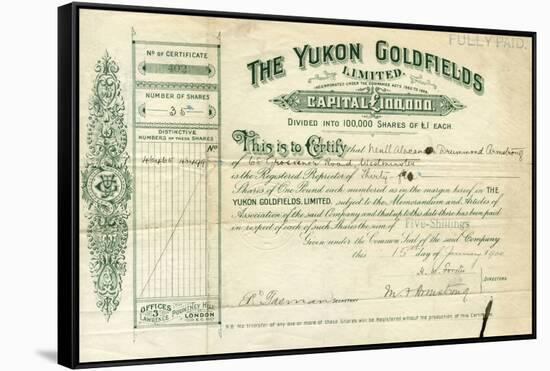 FULLY PAID.
Nº OF CERTIFICATE
402
NUMBER OF SHARES
35
DISTINCTIVE
NUMBERS OF THESE SHARES
THE YUKON GOLDFIELDS
LIMITED.
INCORPORATED UNDER THE COMPANIES ACTS 1862 TO 1898.
CAPITAL £100,000.
DIVIDED INTO 100,000 SHARES OF £1 EACH.
This is to Certify that Neill Alexander Drummond Armstrong
of Grosvenor Road, Westminster
is the Registered Proprietor of Thirty-five
Shares of One Pound each numbered as in the margin hereof in THE
YUKON GOLDFIELDS, LIMITED, subject to the Memorandum and Articles of
Association of the said Company and that up to this date there has been paid
in respect of each of such Shares the sum of Five-Shillings
Given under the Common Seal of the said Company
this 15th day of January 1900
DIRECTORS
SECRETARY
M Armstrong
OFFICES
3
LAWRENCE POUNTNEY HILL
LONDON
E.C.
N.B. No transfer of any one or more of these Shares will be Registered without the production of this Certificate.